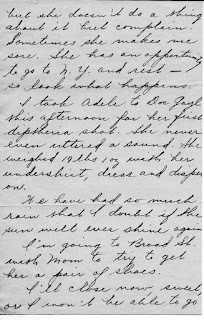 but she doesn't do a thing
about it but complain.
Sometimes she makes me
sore. She has an opportunity
to go to N.Y. and rest —
so look what happens.
I took Adele to Doc
this afternoon for her first
diptheria shot. She never
even uttered a sound. She
weighed 19 lbs 10z with her
undershirt, dress and diaper
on.
We have had so much
rain that I doubt if the
sun will ever shine again
I'm going to Broad St.
with Mom to try to get
her a pair of shoes.
I'll close now, sweet
or I won't be able to go